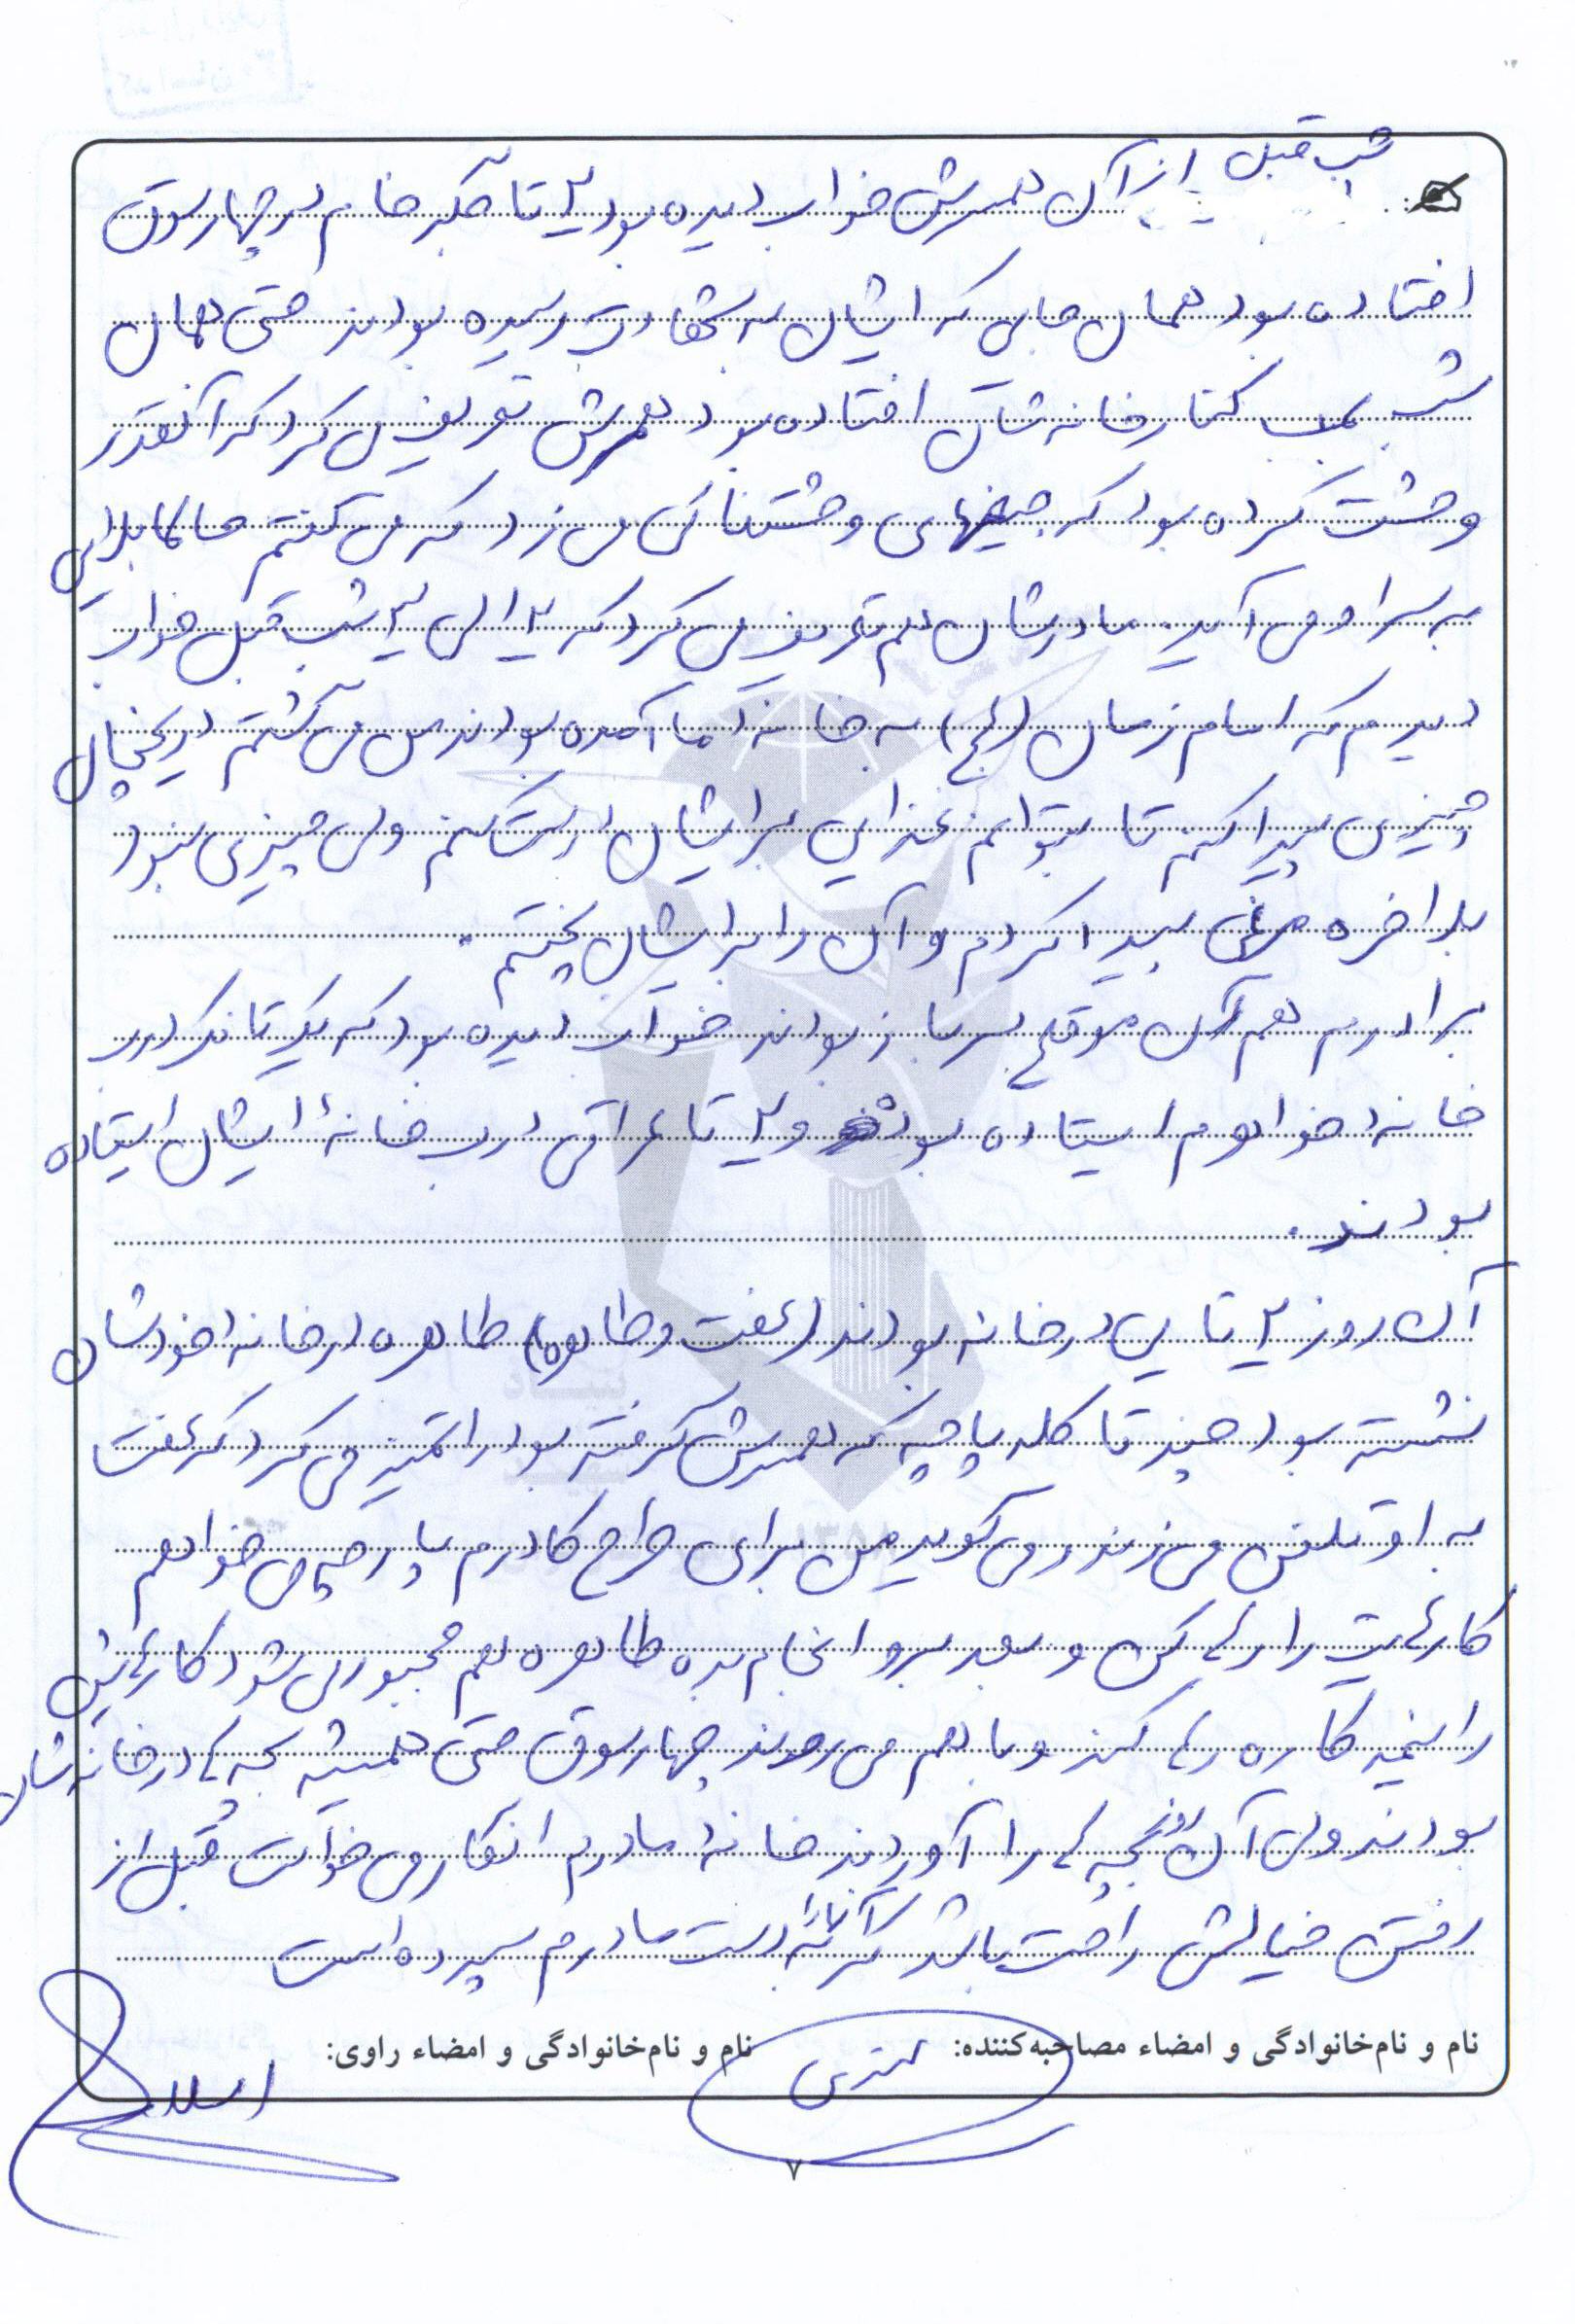 شب قبل از آن همسرش خواب دیده بود ۲ تا جگر خام در چهارسوق
افتاده بود همان جایی که ایشان به شهادت رسیده بودند حتی همان
شب بمب کنار خانه شان افتاده بود همسرش تعریف می کرد که آنقدر
وحشت کرده بود که جیغهای وحشتناکی می زد که می گفتم حتما بلایی
به سر او می آید. مادرشان هم تعریف می کرد که ۲ الی ۳ شب قبل خواب
دیدم که امام زمان (عج) به خانه ما آمده بودند من می گشتم در یخچال
چیزی پیدا کنم تا بتوانم غذایی برایشان درست کنم ولی چیزی نبود
بلاخره مرغی پیدا کردم و آن را برایشان پختم.
برادرم هم آن موقع سرباز بودند خواب دیده بود که یک تانک درب
خانه خواهرم ایستاده بود و ۲ تا عراقی درب خانهٔ ایشان ایستاده
بودند.
آن روز ۲ تایی در خانه بودند (عفت و طاهره) طاهره در خانه خودشان
نشسته بود چند تا کله پاچه که همسرش گرفته بود را تمیز می کرد که عفت
به او تلفن می زند و می گوید من برای طرح کادرم پارچه می خواهم
کارهایت را رها کن و بعد برو انجام بده طاهره هم مجبور می شود کارهایش
را نیمه کاره رها کند و با هم می روند چهارسوق حتی همیشه بچه ها در خانه شان
بودند ولی آن روز بچه ها را آوردند خانه مادرم انگار می خواست قبل از
رفتن خیالش راحت باشد که آنها را به دست مادرم سپرده است
نام و نام‌خانوادگی و امضاء مصاحبه‌کننده: نام و نام‌خانوادگی و امضاء راوی:
۷